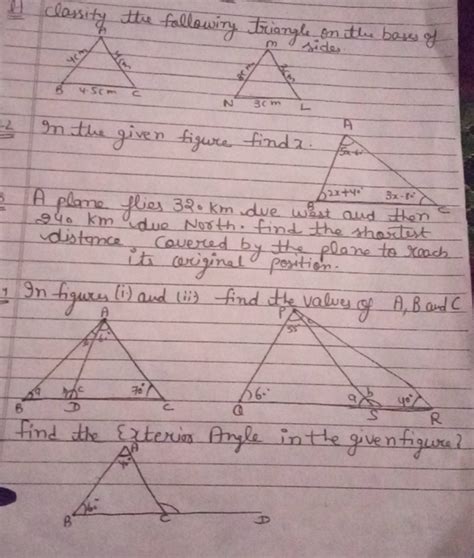 classify the following triangle on the bases of
sides.
A
4cm
4cm
B
4.5cm
C
M
3cm
N
3cm
L
In the given figure find x.
A
5x-60
B
2x+40
3x-80
C
A plane flies 320 km due west and then
240 km due North. find the shortest
distance covered by the plane to reach
its original position.
In figures (i) and (ii) find the values of A, B and C
A
B
a
D
c
70°
C
P
55
Q
60°
a
b
S
40°
R
find the Exterior Angle in the given figure?
A
B
60°
C
D